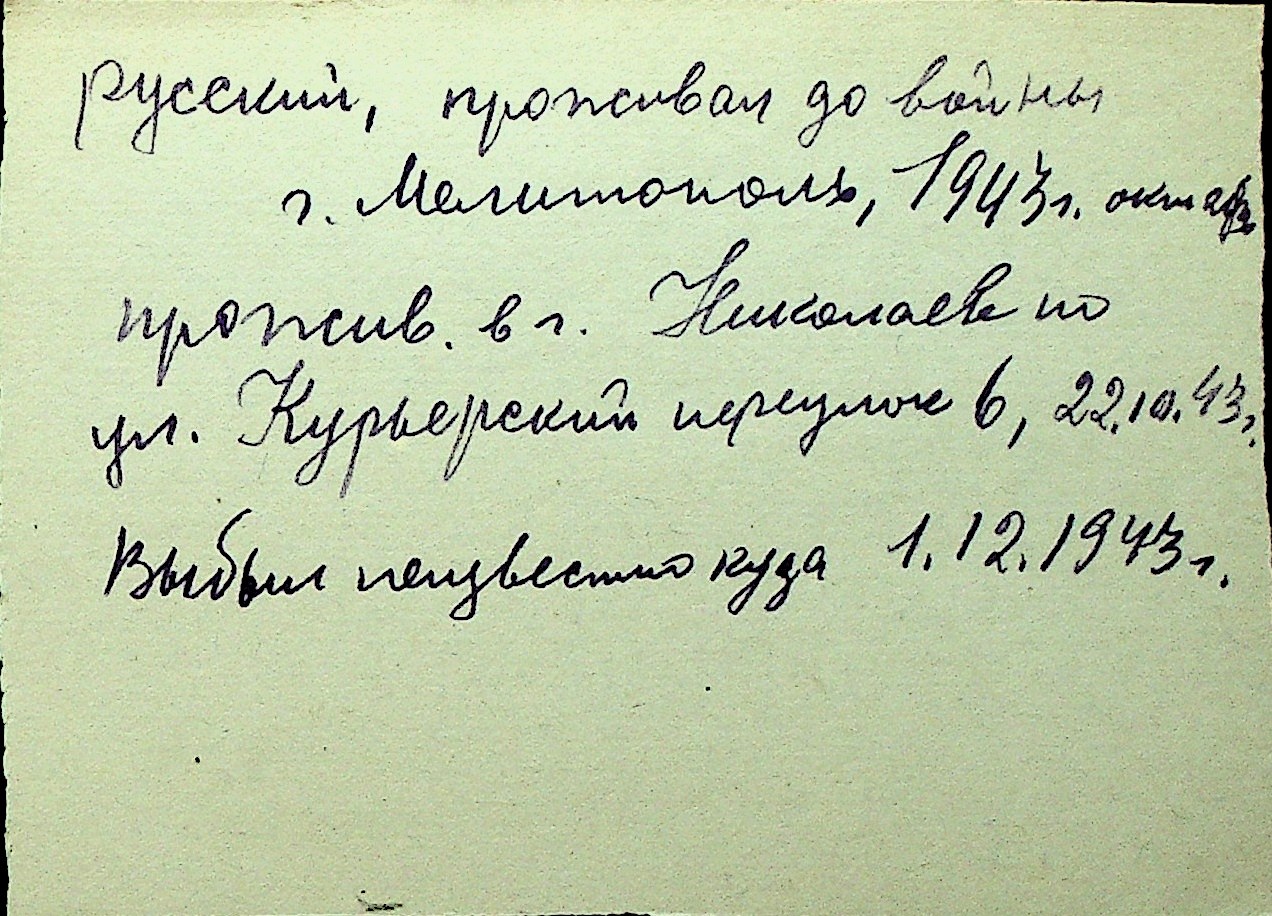 русский, проживал до войны
г. Мелитополь, 1943г. октябрь
прожив. в г. Николаеве по
ул. Курьерский переулок 6, 22.10.43г.
Выбыл неизвестно куда 1.12.1943г.